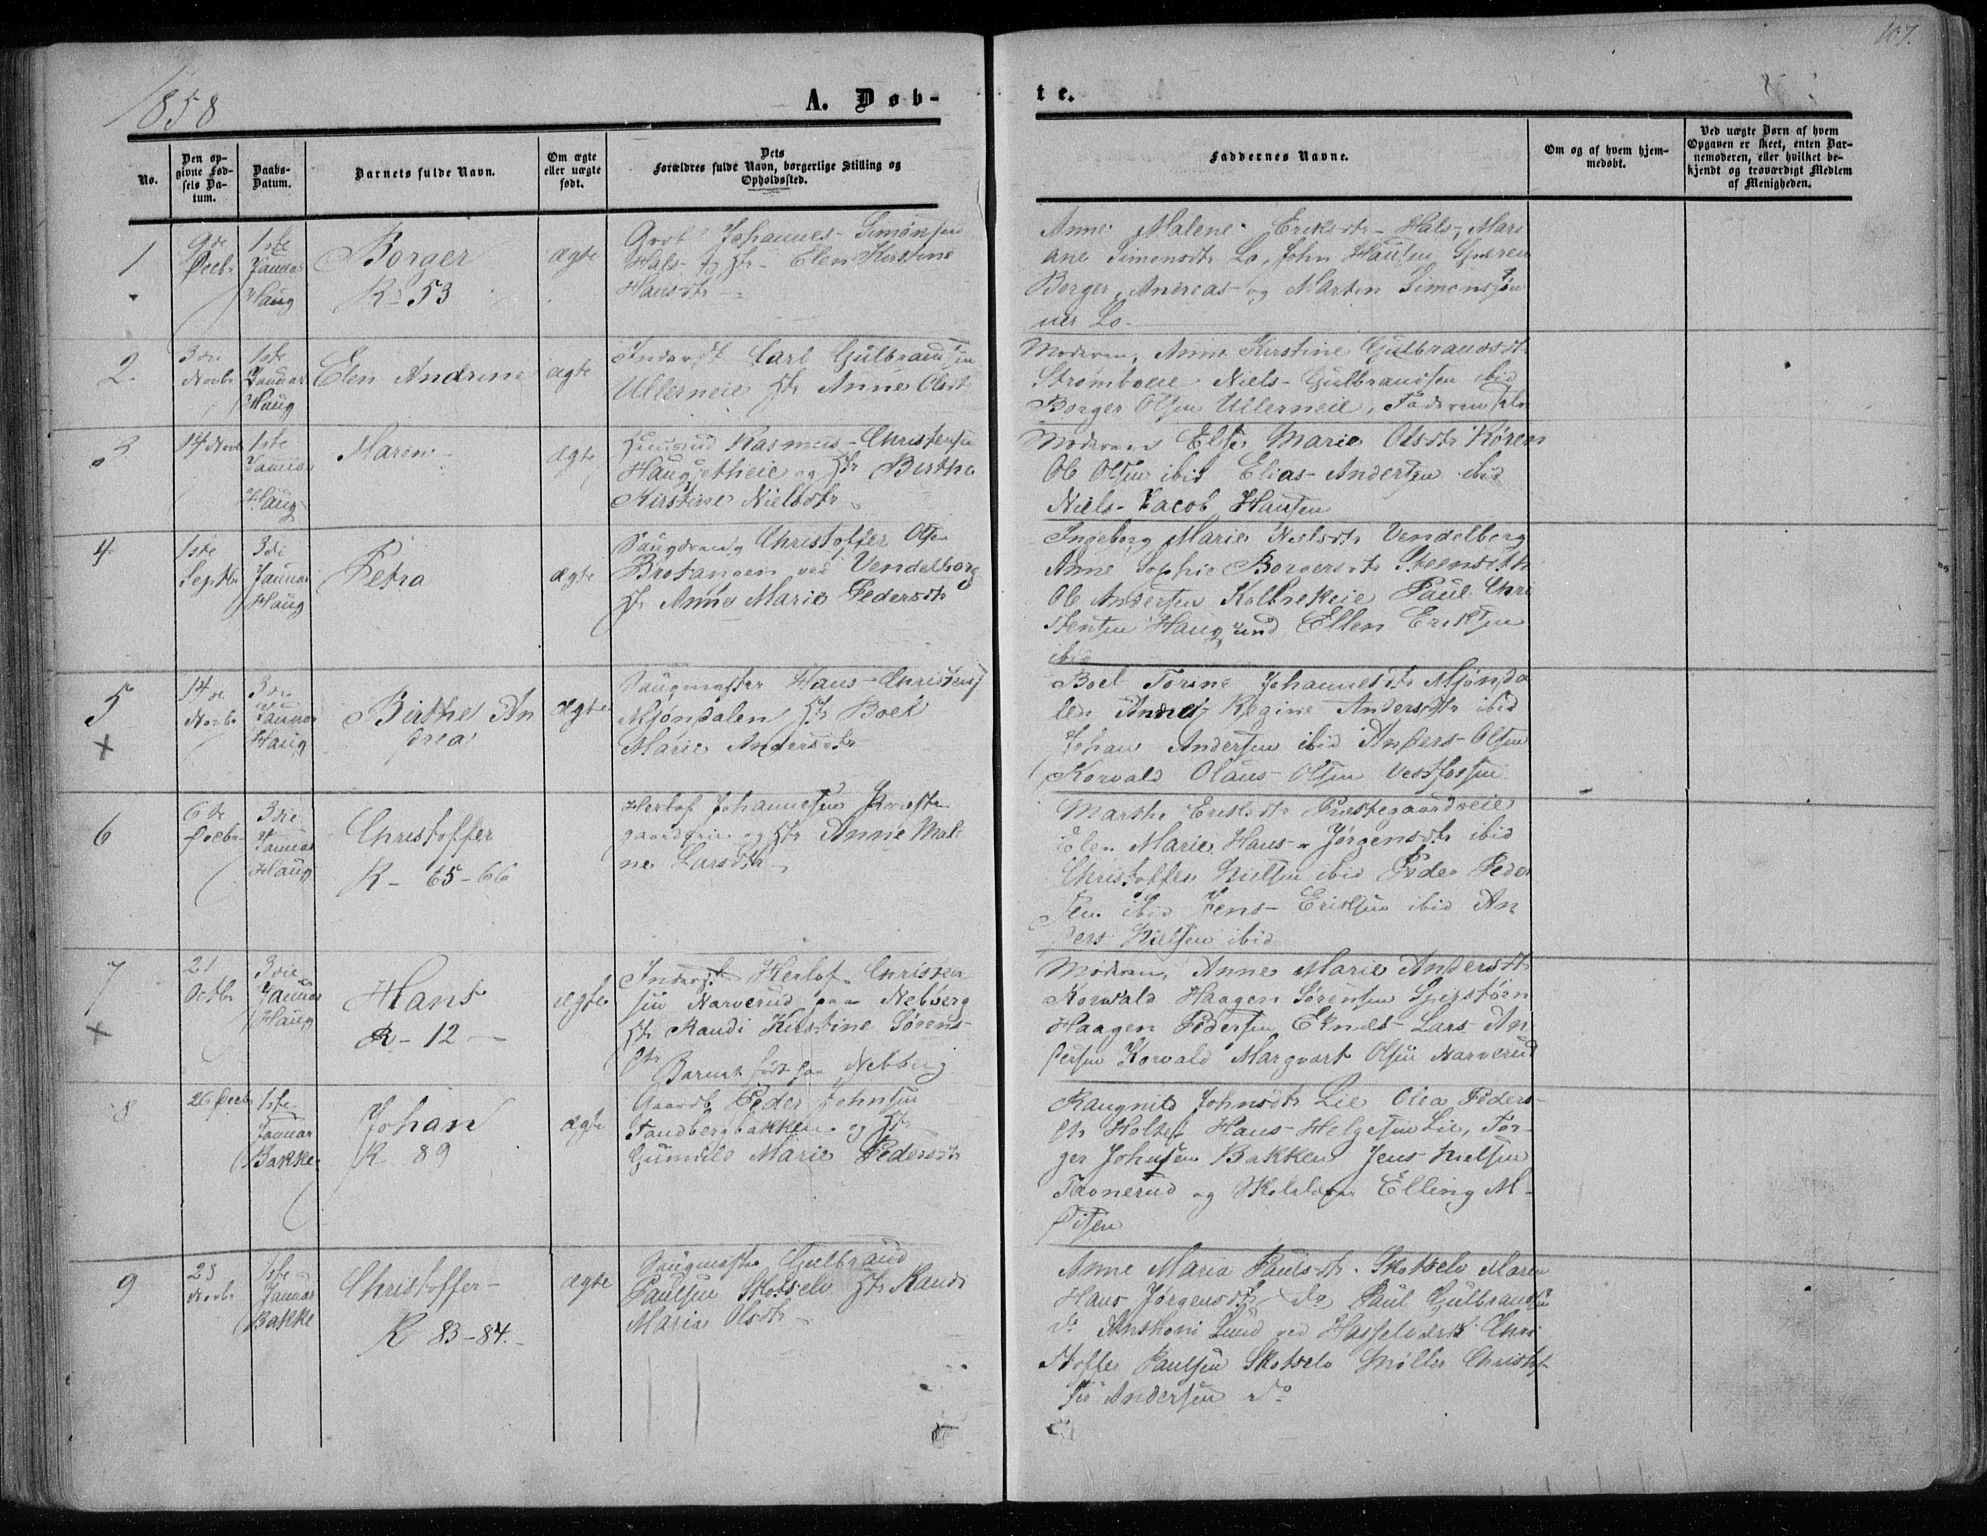 1858
107.
A. Døb-
te.
No.
Den opgivne Fødsels Datum.
Daabs-Datum.
Barnets fulde Navn.
Om ægte eller uægte født.
Dets Forældres fulde Navn, borgerlige Stilling og Opholdssted.
Faddernes Navne.
Om og af hvem hjemmedøbt.
Ved uægte Børn af hvem Opgaven er skeet, enten Barnemoderen, eller hvilket bekjendt og troværdigt Medlem af Menigheden.
1
9de Decbr
1ste Januar Haug
Borger
R 53
ægte
Johannes Simonsen
Hals og Hr Elen Kirstine
Hansdtr
Anne Malene Eriksdtr Hals, Mari
ane Simonsdtr Lo, John Hansen Speren
Borger, Andreas og Martin Simonsøn
ner Lo
2
3die Novbr
1ste Januar Haug
Elen Andrine
ægte
Inderst Carl Gulbrandsen
Ullerneie Hr Anne Olsdt
Moderen, Anne Kirstine Gulbrandsdtr
Strømboeie Niels Gulbrandsen ibid
Borger Olsen Ullerneie, Faderen selv
3
14 Novbr
1ste Januar Haug
Maren
ægte
Rasmus Christensen
og Hr Birthe
Kirstine Nielsdtr
Moderen Else Marie Olsdtr Køren
Ole Olsen ibid Elias Andersen ibid
Niels Jacob Hansen
4
1ste Septbr
3die Januar Haug
Petra
ægte
Saugdreng Christoffer Olsen
Brotangen ved Vendelborg
Hr Anne Marie Pedersdtr
Ingeborg Marie Nielsdtr Vendelborg
Anne Sophie Borgersdtr Steensæth
Ole Andersen Kolbrekeie Paul Chri
stensen Haugsund Ellen Eriksen
ibid
5
×
14de Novbr
3die Januar Haug
Birthe An
drea
ægte
Saugmester Hans Christens
Mjøndalen Hr Boel
Marie Andersdtr
Boel Torine Johannesdtr Mjønda
len Anne Regine Andersdtr ibid
Johan Andersen ibid Anders Olsen
Korvald Olaus Olsen Vestfossen
6
6te Decbr
3die Januar Haug
Christoffer
R - 65-66
Herlof Johannesen Præste
gaardseie og Hr Anne Male
ne Larsdtr
Marthe Eriksdtr Præstegaardseie
Elen Marie Hans-Jørgensdtr ibid
Christoffer Nielsen ibid Peder Peder
sen ibid Jens Eriksen ibid An
ders Nielsen ibid
7
×
21 Octbr
3die Januar Haug
Hans
R - 12
ægte
Inderst Herlof Christen
sen Narverud paa Nebberg
Hr Randi Kirstine Sørens
dtr Barnet født paa Nebberg
Moderen, Anne Marie Andersdtr
Korvald Haagen Sørensen
Haagen Pedersen Eknes Lars An
dersen Korvald Margvart Olsen Narverud
8
26 Decbr
1ste Januar Bakke
Johan
R 89
ægte
Gaardb Peder Johnsen
Sandbergbakken og Hr
Gunild Marie Pedersdtr
Raugnild Johnsdtr Lie Olea Peders
dtr Holte Hans Helgesen Lie, Tor
ger Johnsen Bakken Jens Nielsen
og Skolelærer Elling M
9
23 Novbr
1ste Januar Bakke
Christoffer
R 83-84.
ægte
Saugmester Gulbrand
Paulsen Skotselv Hr Randi
Maria Olsdtr
Anne Maria Paulsdtr Skotselv Maren
Hans Jørgensdtr do Paul Gulbrandsen
do Anthoni Lund ved Hasselværk Chri
stoffer Paulsen Skotselv Møller Christof
fer Andersen do